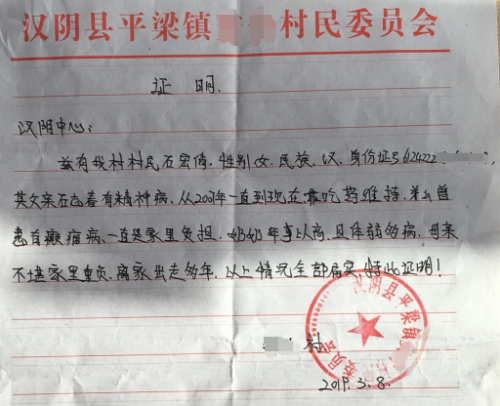 汉阴县平梁镇 村民委员会
证明.
汉阴中心:
兹有我村村民石 倩,性别女、民族、汉、身份证号612422
其父亲石 春有精神病、从2007年一直到现在靠吃药维持、弟弟曾
患有癫痫病、一直是家里负担、奶奶年事以高、且体弱多病、母亲
不堪家里重负、离家出走多年、以上情况全部属实 特此证明!
村
汉阴县平梁镇 委员会
2019.3.8.